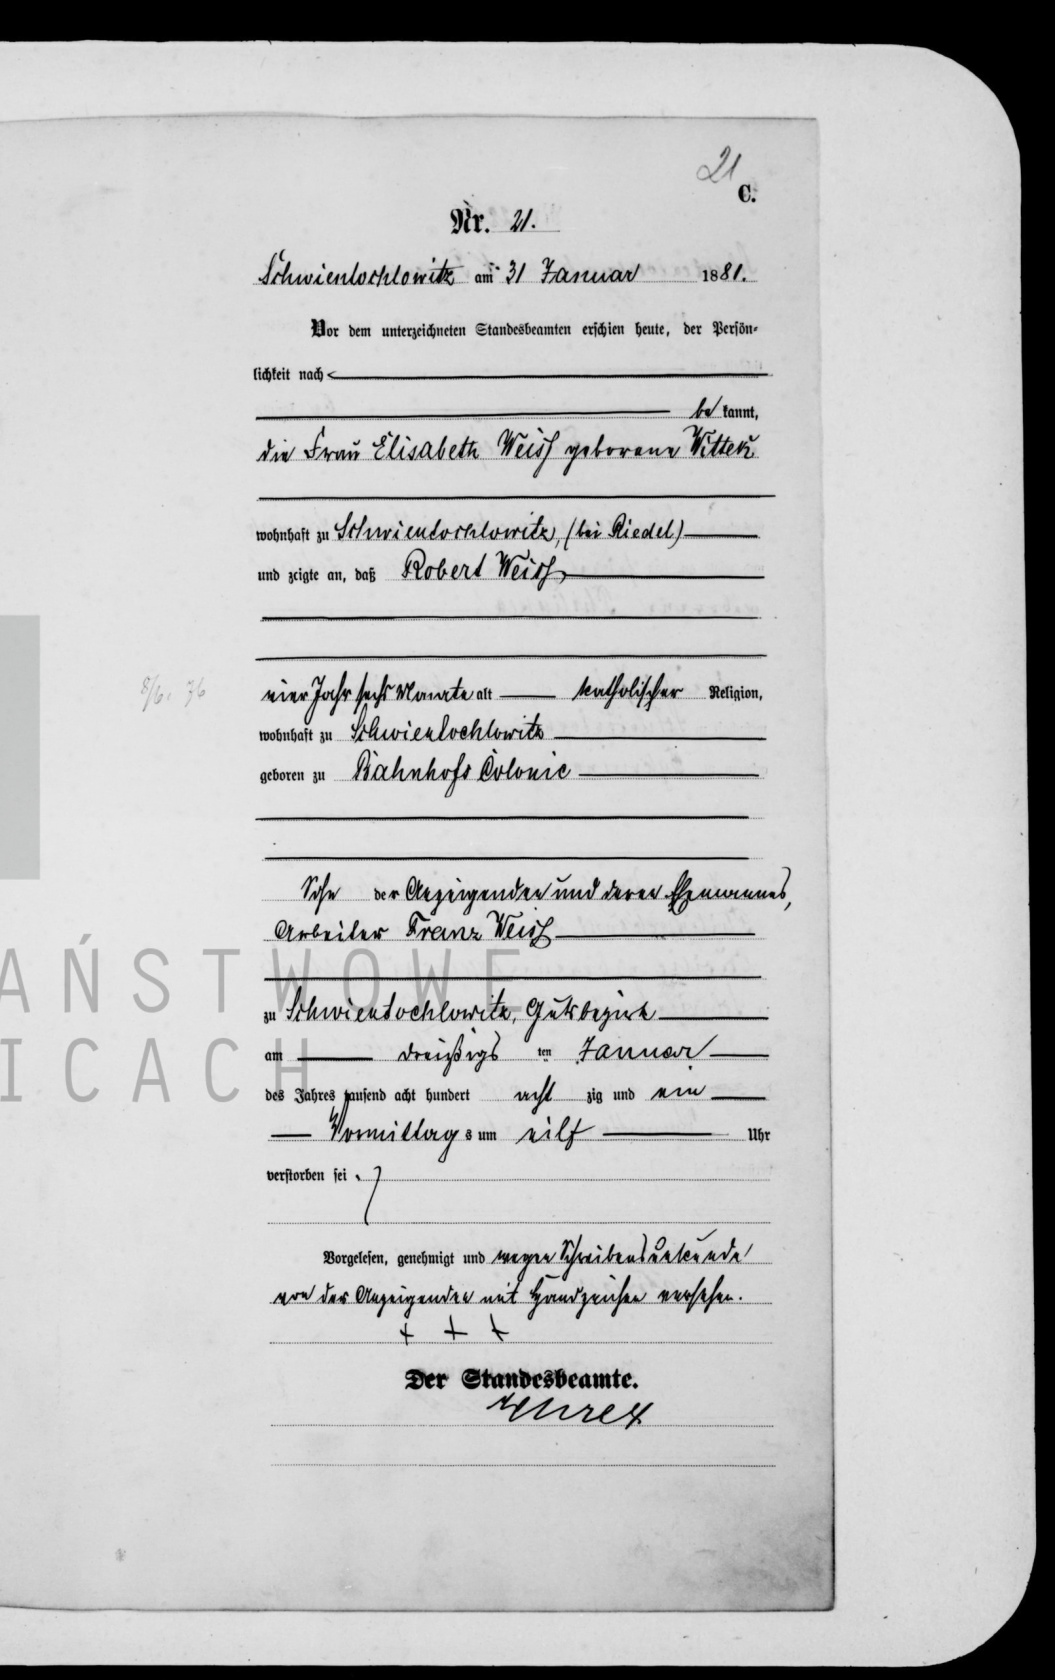 21
C.
Nr. 21.
Schwientochlowitz am 31 Januar 1881.
Vor dem unterzeichneten Standesbeamten erschien heute, der Persön-
lichkeit nach
be kannt,
die Frau Elisabeth Weiß geborene Wittek
wohnhaft zu Schwientochlowitz, (bei Riedel)
und zeigte an, daß Robert Weiß
8/6. 76
vier Jahr sechs Monate alt katholischer Religion,
wohnhaft zu Schwientochlowitz
geboren zu Bahnhofs Colonie
Sohn der Anzeigenden und deren Ehemannes,
Arbeiter Franz Weiß
AŃSTWOWE
zu Schwientochlowitz, Gutsbezirk
am dreißigs ten Januar
ICACH
des Jahres tausend acht hundert acht zig und ein
Vormittag s um eilf Uhr
verstorben sei.
Vorgelesen, genehmigt und wegen Schreibensunkunde
von der Anzeigenden mit Handzeichen versehen.
+ + +
Der Standesbeamte.